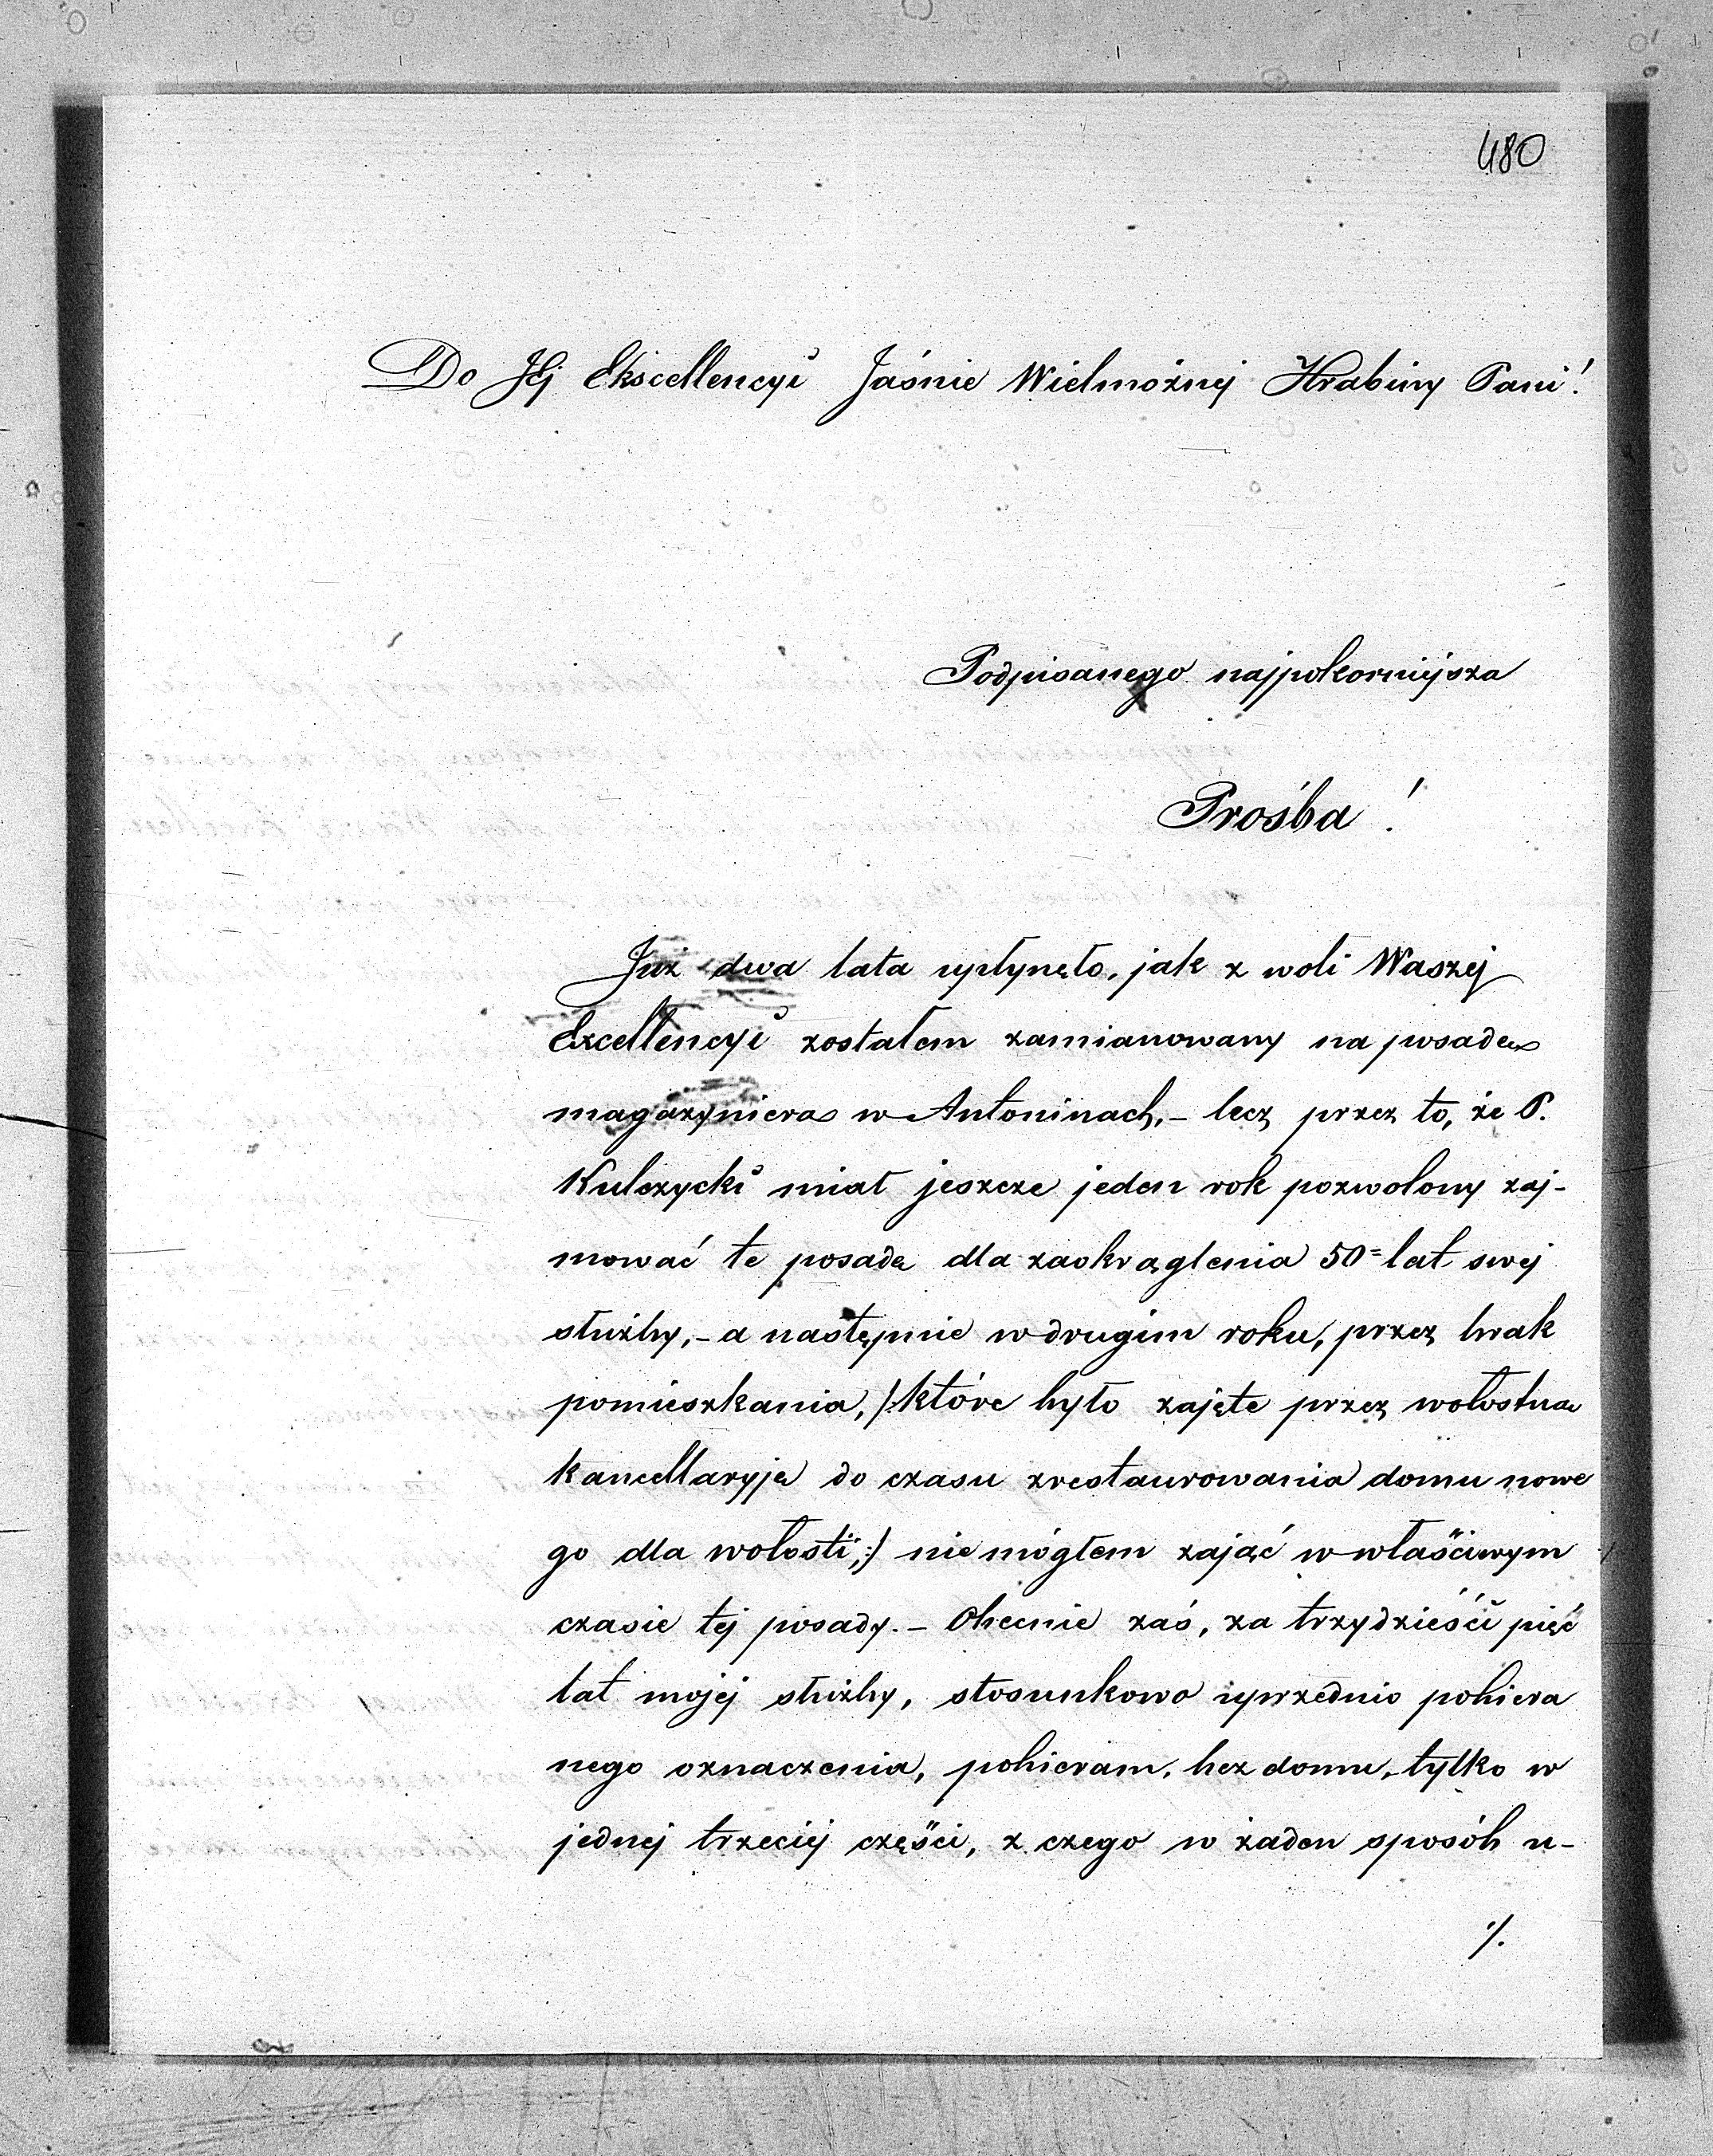 480
Do Jej Ekscellencyi Jaśnie Wielmożnej Hrabiny Pani!
Podpisanego najpokorniejsza
Prośba!
Już dwa lata upłynęło, jak z woli Waszej
Excellencyi zostałem zamianowany na posadę
magazyniera w Antoninach,- lecz przez to, że P.
Kulczycki miał jeszcze jeden rok pozwolony zaj-
mować tę posadę dla zaokrąglenia 50= lat swej
służby,- a następnie w drugim roku, przez brak
pomieszkania, /:które było zajęte przez wołostną
kancellaryję do czasu zrestaurowania domu nowe
go dla wołosti,:/ nie mógłem zająć w właściwym
czasie tej posady.- Obecnie zaś, za trzydzieści pięć
lat mojej służby, stosunkowo uprzednio pobiera
nego oznaczenia, pobieram, bez domu, tylko w
jednej trzeciej części, z czego w żaden sposób u-
·/.